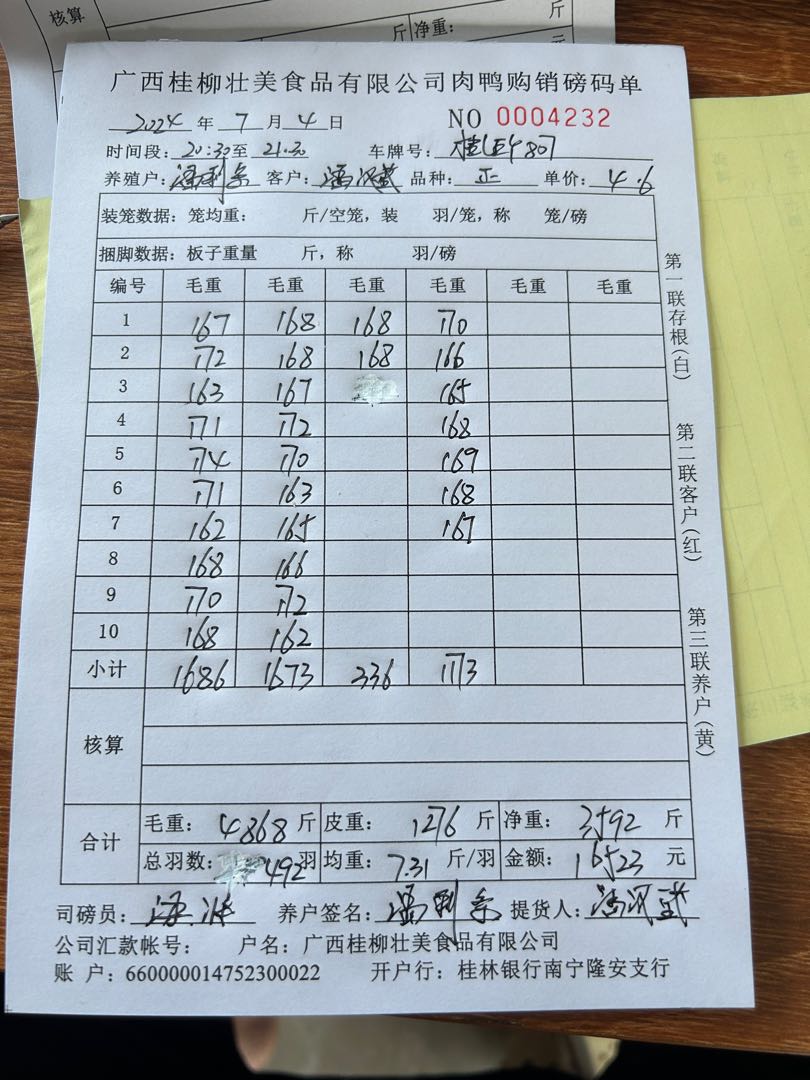 核算
斤
斤 净重:
元
广西桂柳壮美食品有限公司肉鸭购销磅码单
2024 年 7 月 4 日 NO 0004232
时间段: 20:30 至 21.30 车牌号:
养殖户: 客户: 品种: 正 单价: 4.6
装笼数据: 笼均重: 斤/空笼, 装 羽/笼, 称 笼/磅
捆脚数据: 板子重量 斤, 称 羽/磅
编号 毛重 毛重 毛重 毛重 毛重 毛重
1 167 168 168 170
2 172 168 168 166
3 163 167 165
4 171 172 168
5 174 170 169
6 171 163 168
7 162 165 167
8 168 166
9 170 172
10 168 162
小计 1686 1673 336 1173
核算
合计 毛重: 4868 斤 皮重: 1276 斤 净重: 3592 斤
总羽数: 492 羽 均重: 7.31 斤/羽 金额: 16523 元
司磅员: 养户签名: 提货人:
公司汇款帐号: 户名: 广西桂柳壮美食品有限公司
账 户: 660000014752300022 开户行: 桂林银行南宁隆安支行
第一联存根(白)
第二联客户(红)
第三联养户(黄)